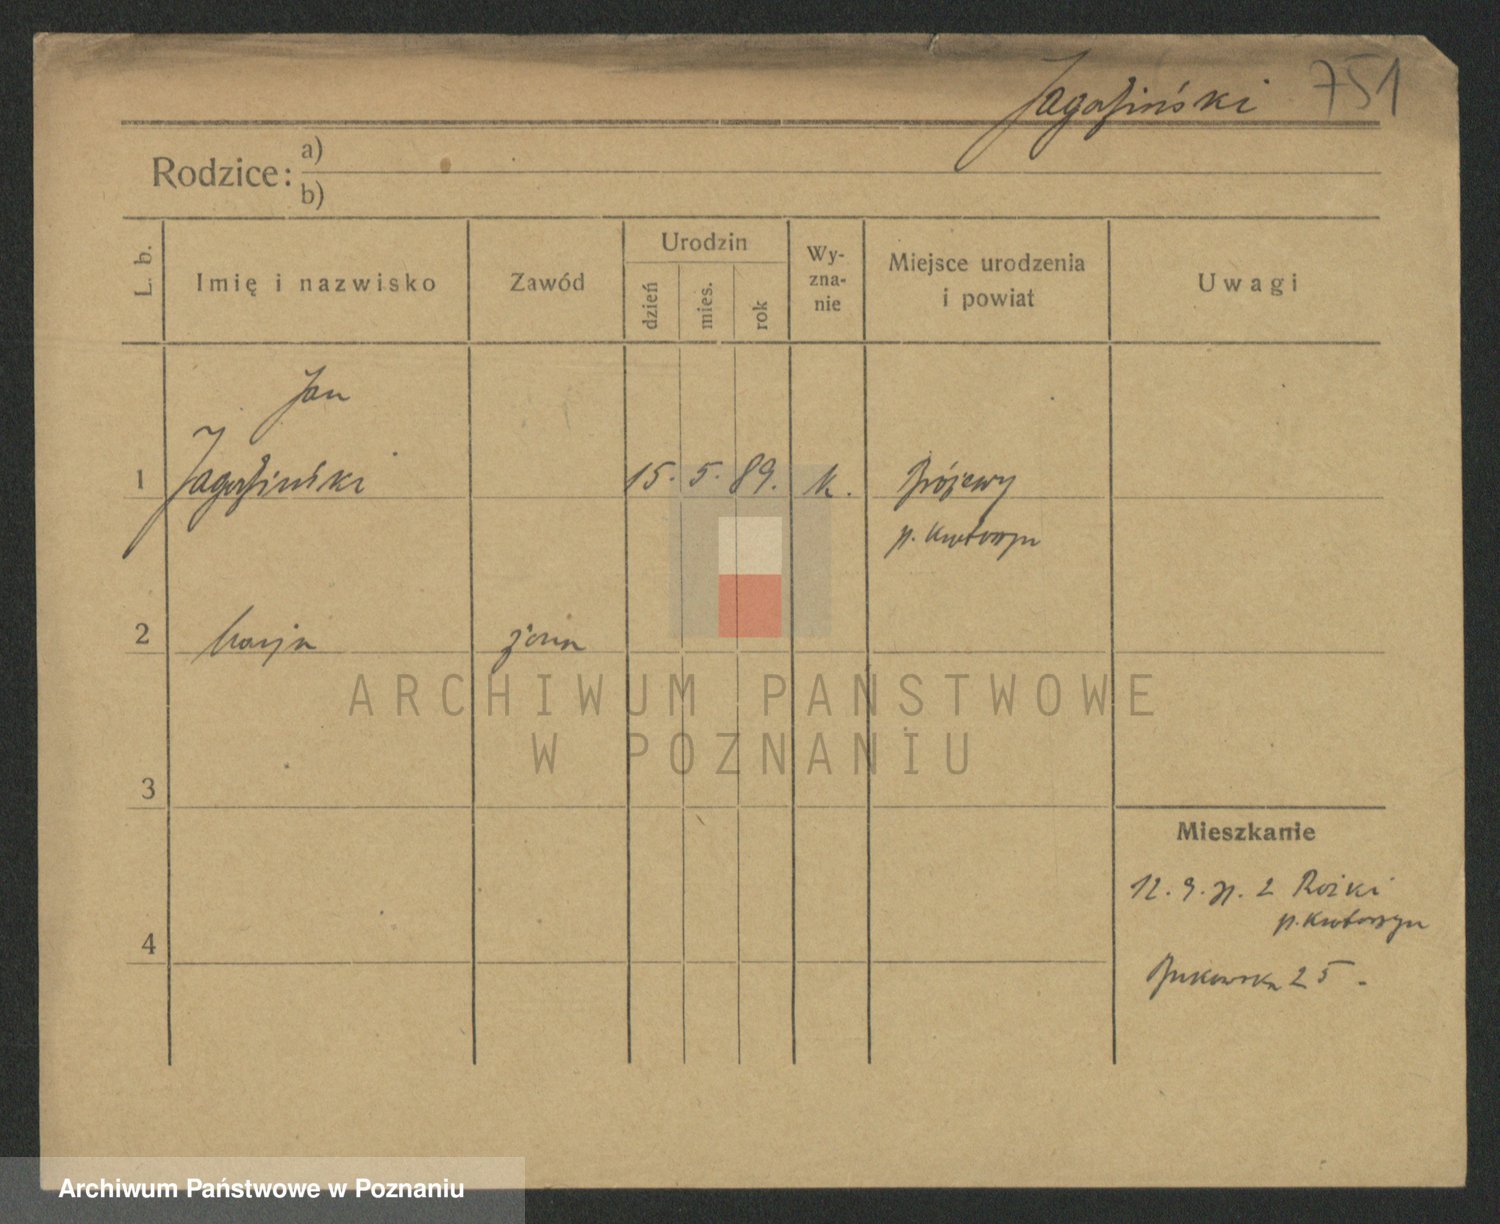 Jagodziński 751
Rodzice: a)
b)
L. b. Imię i nazwisko Zawód Urodzin dzień mies. rok Wy-zna-nie Miejsce urodzenia i powiat Uwagi
Jan
1 Jagodziński 15. 5. 89. k.
p. Krotoszyn
2 Marja żona
ARCHIWUM PAŃSTWOWE
W POZNANIU
3
Mieszkanie
12. 9. 2 Rożki
p. Krotoszyn
4
Bukowska 25.
Archiwum Państwowe w Poznaniu